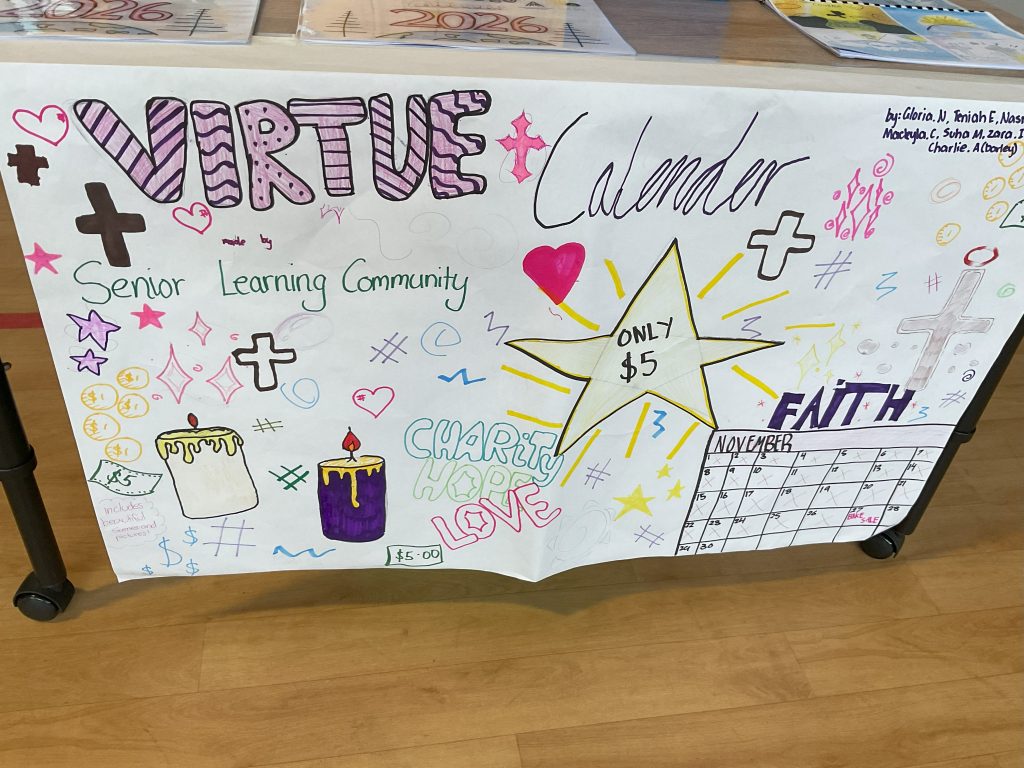 2026
2026
VIRTUE
Calender
by: Gloria. N, Teniah E, Nasr
Mackeyla. C, Suha M, zara. I
Charlie. A (barley)
made by
Senior Learning Community
ONLY
$5
FAITH
$1
$1
$1
$1
$5
CHARiTy
HOPE
LOVE
includes
beautiful
scenes and
pictures!
$
$
$
$
$5.00
NOVEMBER
1 2 3 4 5 6 7
8 9 10 11 12 13 14
15 16 17 18 19 20 21
22 23 24 25 26 27 28
BAKE SALE
29 30